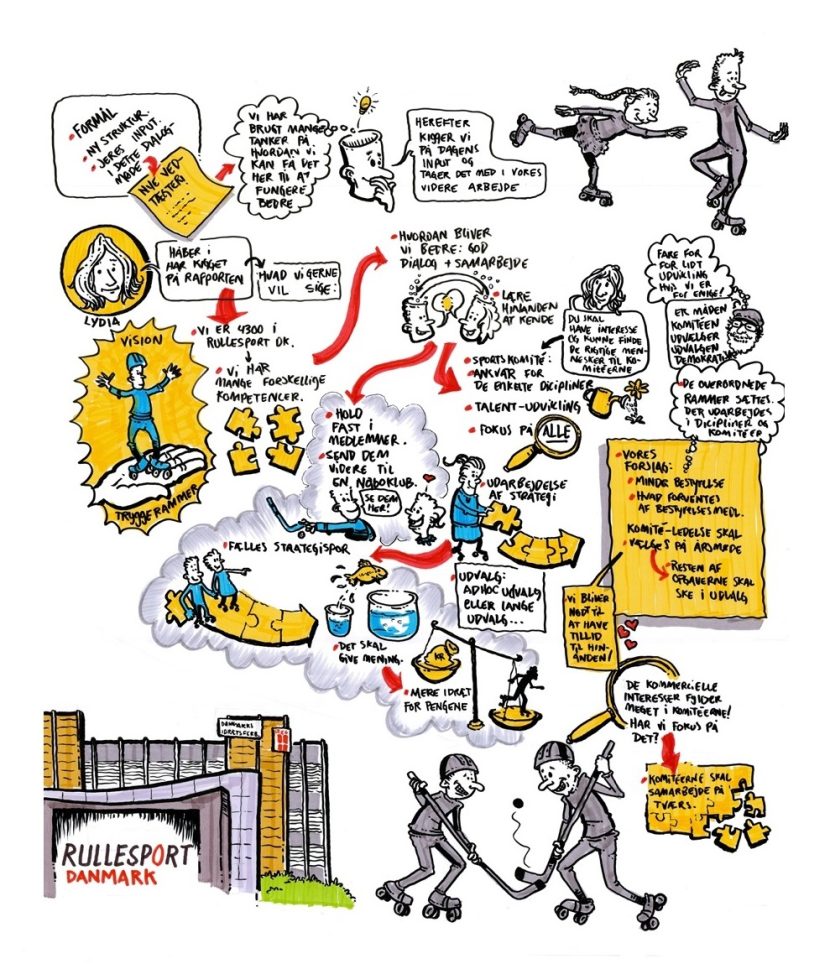 FORMÅL
• NY STRUKTUR.
• JERES INPUT.
I DETTE DIALOG-
MØDE
NYE VED-
TÆGTER!
VI HAR
BRUGT MANGE
TANKER PÅ
HVORDAN VI
KAN FÅ DET
HER TIL AT
FUNGERE
BEDRE
HEREFTER
KIGGER VI
PÅ DAGENS
INPUT OG
TAGER DET MED I VORES
VIDERE ARBEJDE
LYDIA
HÅBER I
HAR KIGGET
PÅ RAPPORTEN
HVAD VI GERNE
VIL SIGE:
• HVORDAN BLIVER
VI BEDRE: GOD
DIALOG + SAMARBEJDE
• LÆRE
HINANDEN
AT KENDE
FARE FOR
FOR LIDT
UDVIKLING
HVIS VI ER
FOR ENIGE!
ER MÅDEN
KOMITÉEN
UDVÆLGER
UDVALGEN
DEMOKRATI
DU SKAL
HAVE INTERESSE
OG KUNNE FINDE
DE RIGTIGE MEN-
NESKER TIL KO-
MITÉERNE
VISION
TRYGGE RAMMER
• VI ER 4300 I
RULLESPORT DK.
• VI HAR
MANGE FORSKELLIGE
KOMPETENCER.
• SPORTSKOMITÉ:
• ANSVAR FOR
DE ENKELTE DICIPLINER
• TALENT-UDVIKLING
• FOKUS PÅ ALLE
• DE OVERORDNEDE
RAMMER SÆTTES.
DER UDARBEJDES
I DICIPLINER OG
KOMITÉER
• HOLD
FAST I
MEDLEMMER.
• SEND DEM
VIDERE TIL
EN NABOKLUB.
SE DEM
HER!
• UDARBEJDELSE
AF STRATEGI
• VORES
FORSLAG:
• MINDRE BESTYRELSE
• HVAD FORVENTES
AF BESTYRELSESMEDL.
KOMITÉ-LEDELSE SKAL
VÆLGES PÅ ÅRSMØDE
• RESTEN AF
OPGAVERNE SKAL
SKE I UDVALG
• FÆLLES STRATEGISPOR
• UDVALG:
ADHOC UDVALG
ELLER LANGE
UDVALG...
• VI BLIVER
NØDT TIL
AT HAVE
TILLID
TIL HIN-
ANDEN!
• DET SKAL
GIVE MENING.
KR
• MERE IDRÆT
FOR PENGENE
DE KOMMERCIELLE
INTERESSER FYLDER
MEGET I KOMITÉERNE!
HAR VI FOKUS PÅ
DET?
• KOMITÉERNE SKAL
SAMARBEJDE PÅ
TVÆRS.
DANMARKS
IDRÆTSFORB.
RULLESPORT
DANMARK